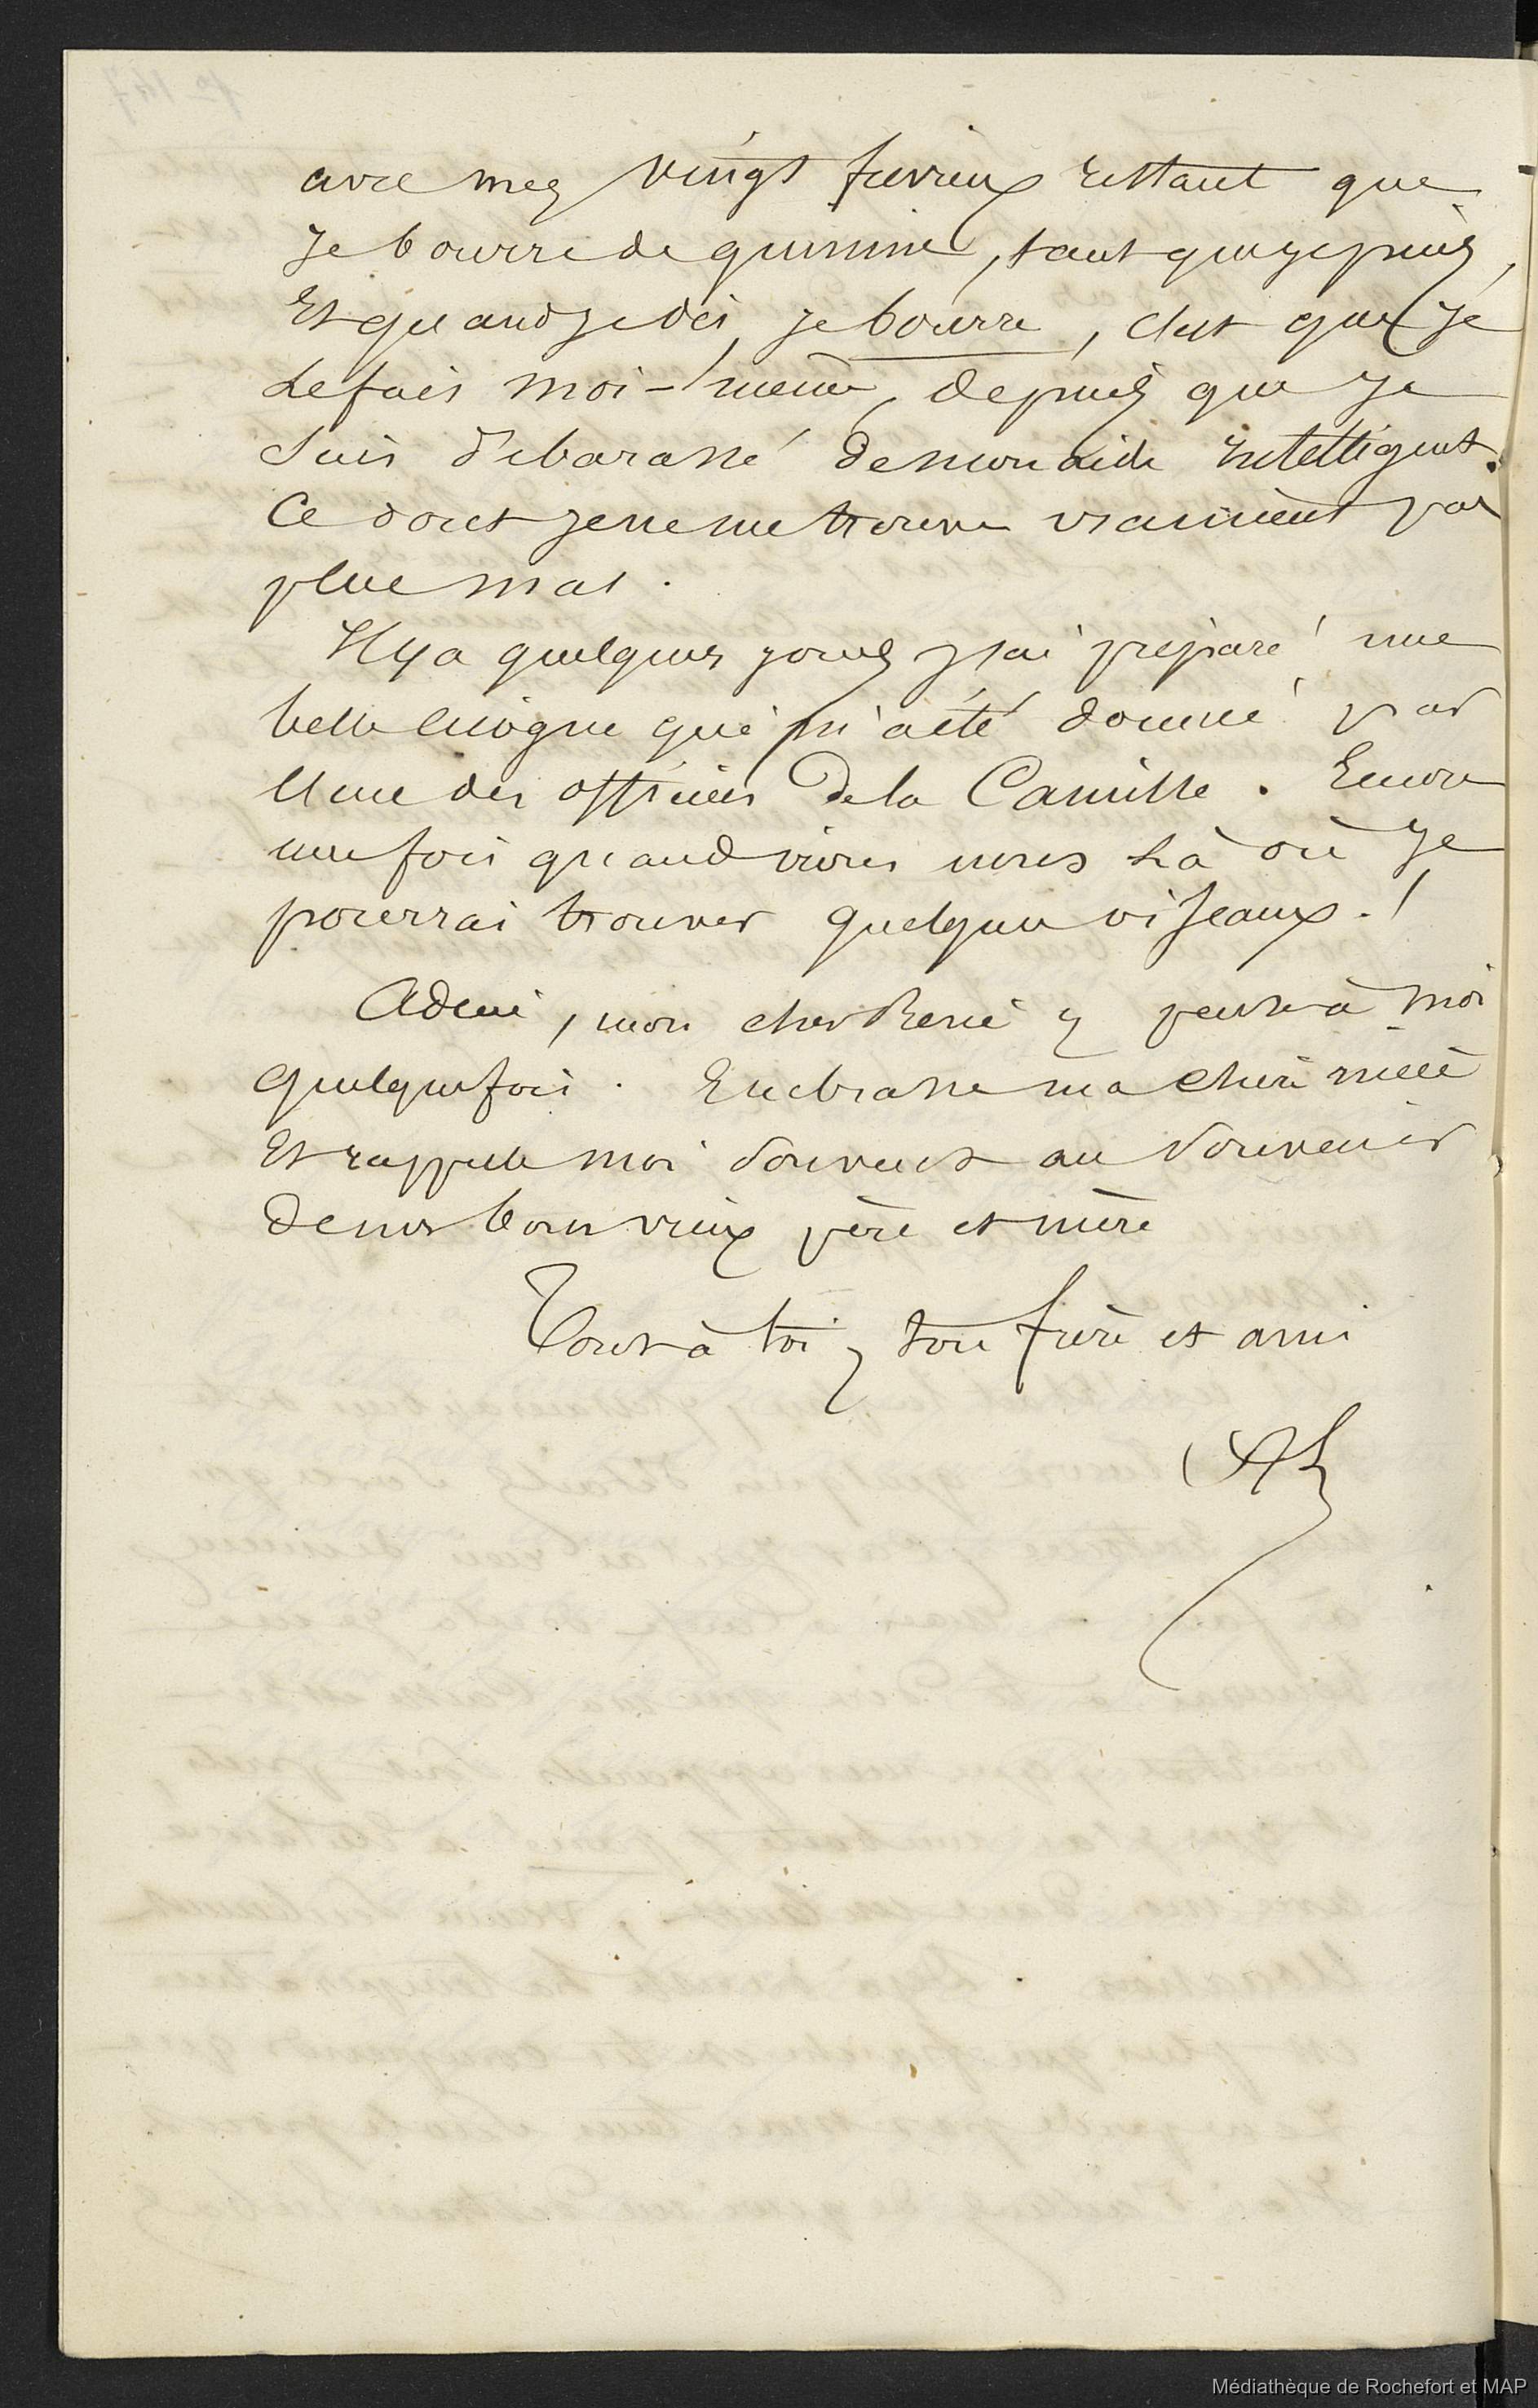 avec mes vingt fievreux restant que
je bourre de quinine, tant que je puis,
Et quand je dis je bourre, c'est que je
le fais moi-même, depuis que je
suis débarassé de mon aide intelligent.
Ce dont je ne me trouve vraiment pas
plus mal.
Il y a quelques jours j'ai préparé une
belle cicogne qui m'a été donné par
l'une des officiers de la Camille. Encore
une fois quand irons nous là où je
pourrai trouver quelques oiseaux.!
Adieu, mon cher René, pense à moi
quelquefois. Embrasse ma chère nièce
Et rappelle moi souvent au souvenir
de nos bons vieux père et mère
Tout à toi, ton frère et ami
Médiathèque de Rochefort et MAP